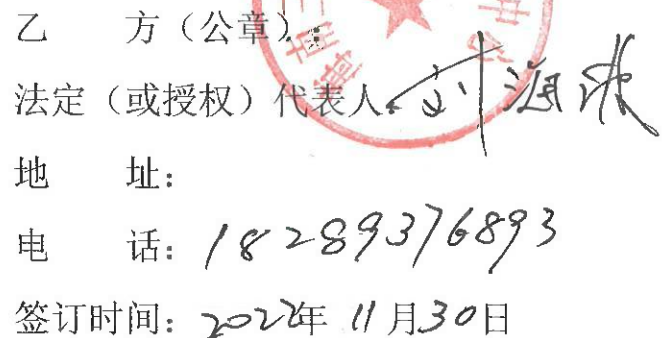 乙 方（公章）：
法定（或授权）代表人：刘海波
地 址：
电 话：18289376893
签订时间：2022年11月30日